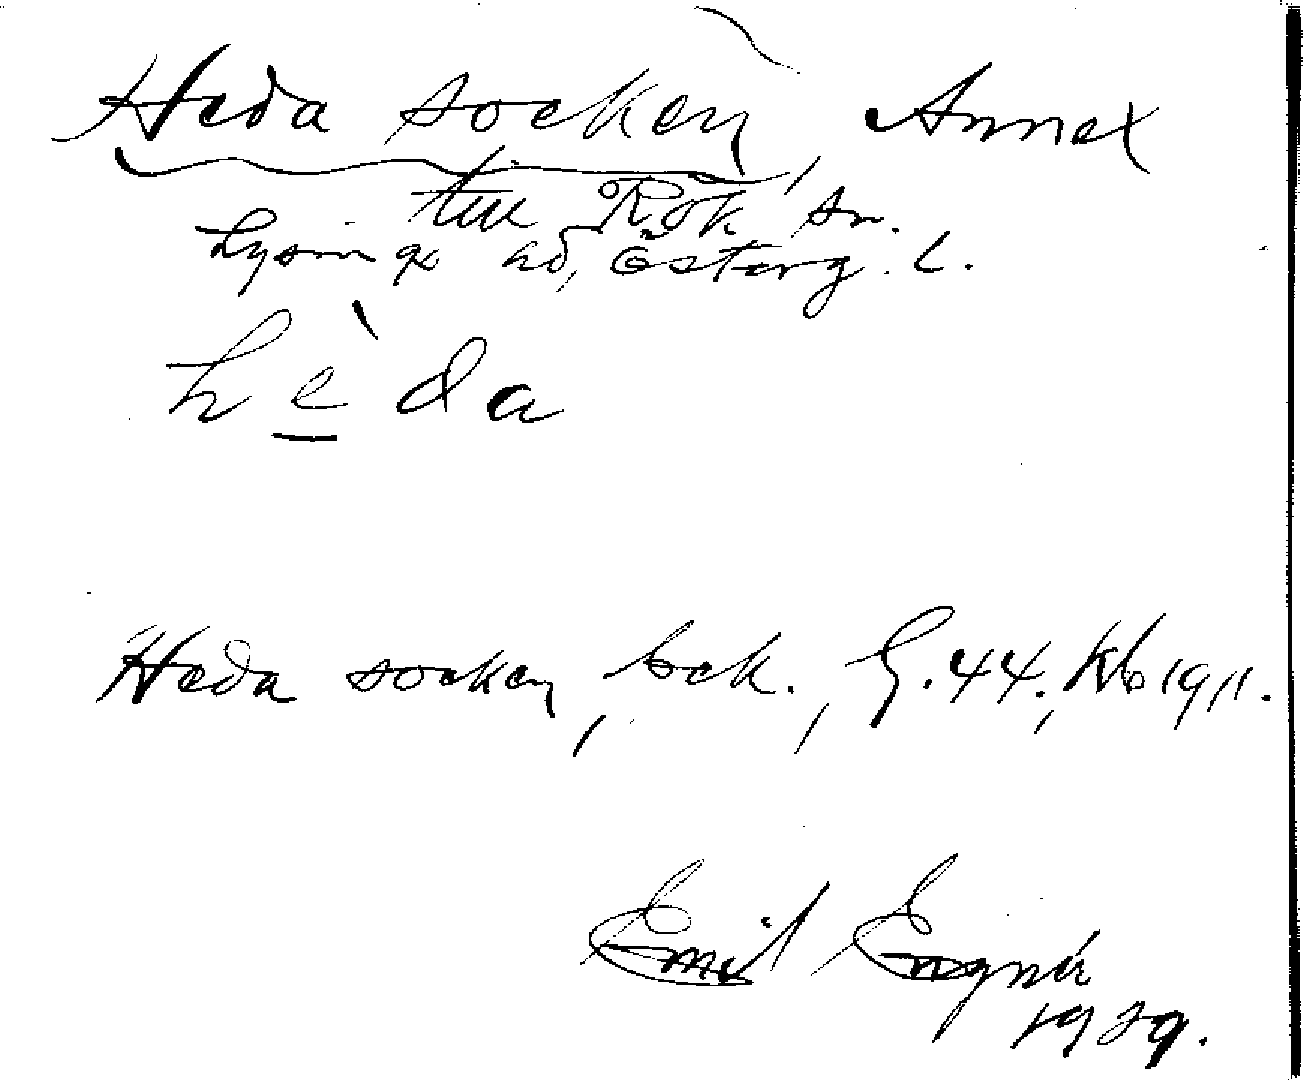 Heda socken, Annex
till Rök sn.
Lysings hd, Österg. l.
hèda
Heda socken, bek., G. 44, Kb 1911.
Emil Engnér
1929.